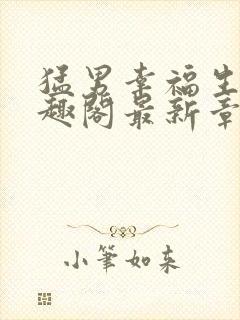 猛男幸福生
趣阁最新章
小筆如来